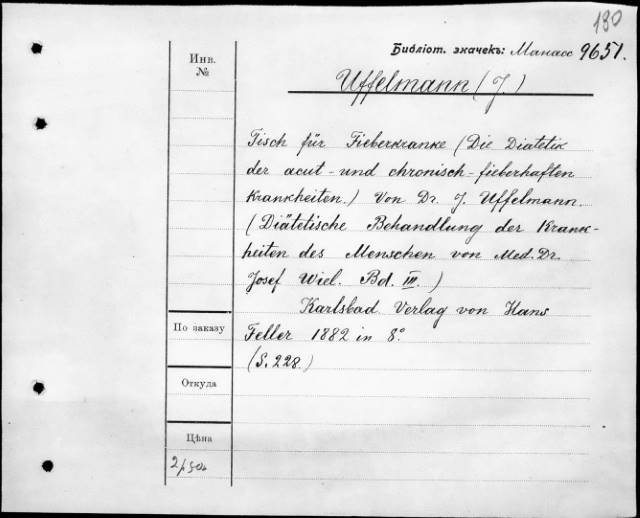 180
Библіот. значекъ: Манасс 9651.
Инв.
№
Uffelmann (J.)
Tisch für Fieberkranke (Die Diätetik
der acut- und chronisch-fieberhaften
Krankheiten.) Von Dr. J. Uffelmann.
(Diätetische Behandlung der Krank-
heiten des Menschen von Med. Dr.
Josef Wiel. Bd. III.)
Karlsbad Verlag von Hans
Feller 1882 in 8°
(S. 228.)
По заказу
Откуда
Цѣна